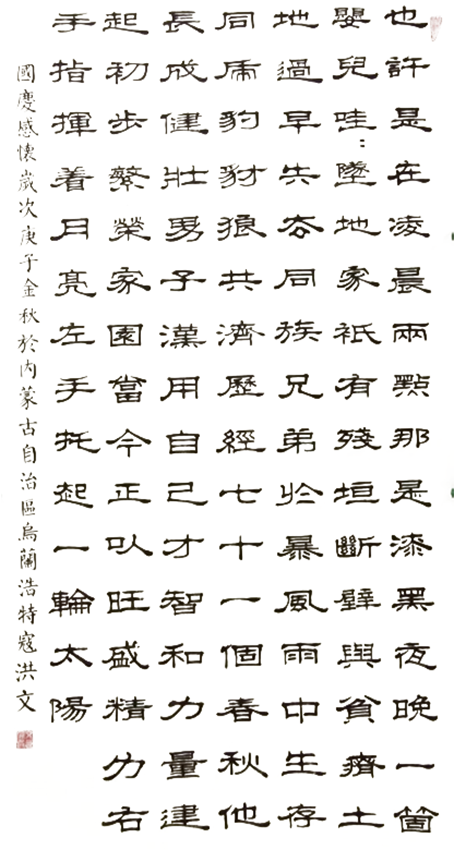 也許是在凌晨兩點那是漆黑夜晚一箇
嬰兒哇::墜地家祇有殘垣斷壁與貧瘠土
地過早失去同族兄弟於暴風雨中生存
同虎豹豺狼共濟歷經七十一個春秋他
長成健壯男子漢用自己才智和力量建
起初步繁榮家園當今正以旺盛精力右
手指揮着月亮左手托起一輪太陽
國慶感懷歲次庚子金秋於內蒙古自治區烏蘭浩特寇洪文